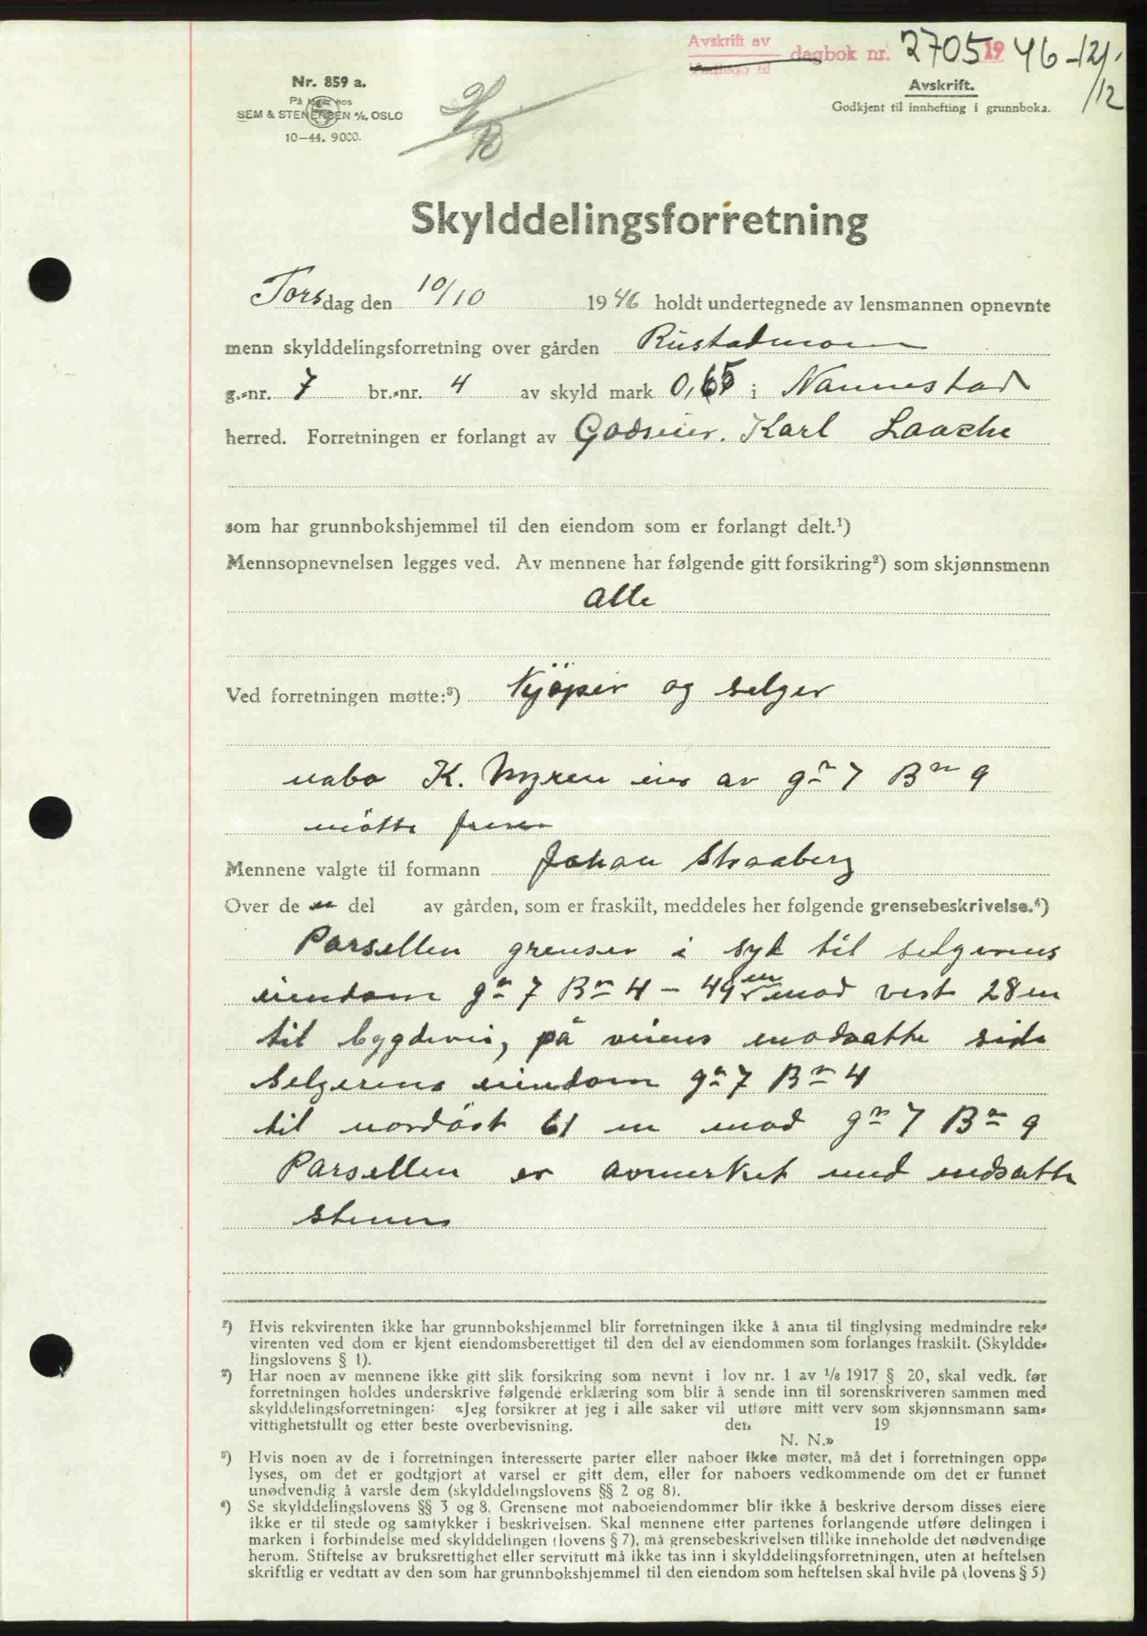 Avskrift av
Vedlegg til
dagbok nr. 2705 19 46 - 12/12
Nr. 859 a.
På lager hos
SEM & STENERSEN A/S, OSLO
10-44. 9000.
Avskrift.
Godkjent til innhefting i grunnboka.
Skylddelingsforretning
Torsdag den 10/10 1946 holdt undertegnede av lensmannen opnevnte
menn skylddelingsforretning over gården Rustadmoen
g.-nr. 7 br.-nr. 4 av skyld mark 0,65 i Nannestad
herred. Forretningen er forlangt av Godseier. Karl Laache
som har grunnbokshjemmel til den eiendom som er forlangt delt.¹)
Mennsopnevnelsen legges ved. Av mennene har følgende gitt forsikring²) som skjønnsmenn
alle
Ved forretningen møtte:³) Kjöper og selger
nabo K. Myren eier av gn 7 Bn 9
mötte frem
Mennene valgte til formann Johan Straaberg
Over de en del av gården, som er fraskilt, meddeles her følgende grensebeskrivelse.⁴)
Parsellen grenser i syd til selgerens
eiendom gn 7 Bn 4 - 49 m mod vest 28 m
til bygdevei, på veiens modsatte side
selgerens eiendom gn 7 Bn 4
til nordöst 61 m mod gn 7 Bn 9
Parsellen er avmerket med nedsatte
stener
¹) Hvis rekvirenten ikke har grunnbokshjemmel blir forretningen ikke å anta til tinglysing medmindre rek-
virenten ved dom er kjent eiendomsberettiget til den del av eiendommen som forlanges fraskilt. (Skyldde-
lingslovens § 1).
²) Har noen av mennene ikke gitt slik forsikring som nevnt i lov nr. 1 av 1/6 1917 § 20, skal vedk. før
forretningen holdes underskrive følgende erklæring som blir å sende inn til sorenskriveren sammen med
skylddelingsforretningen: «Jeg forsikrer at jeg i alle saker vil utføre mitt verv som skjønnsmann sam-
vittighetsfullt og etter beste overbevisning. den 19
N. N.»
³) Hvis noen av de i forretningen interesserte parter eller naboer ikke møter, må det i forretningen opp-
lyses, om det er godtgjort at varsel er gitt dem, eller for naboers vedkommende om det er funnet
unødvendig å varsle dem (skylddelingslovens §§ 2 og 8).
⁴) Se skylddelingslovens §§ 3 og 8. Grensene mot naboeiendommer blir ikke å beskrive dersom disses eiere
ikke er til stede og samtykker i beskrivelsen. Skal mennene etter partenes forlangende utføre delingen i
marken i forbindelse med skylddelingen (lovens § 7), må grensebeskrivelsen tillike inneholde det nødvendige
herom. Stiftelse av bruksrettighet eller servitutt må ikke tas inn i skylddelingsforretningen, uten at heftelsen
skriftlig er vedtatt av den som har grunnbokshjemmel til den eiendom som heftelsen skal hvile på (lovens § 5)